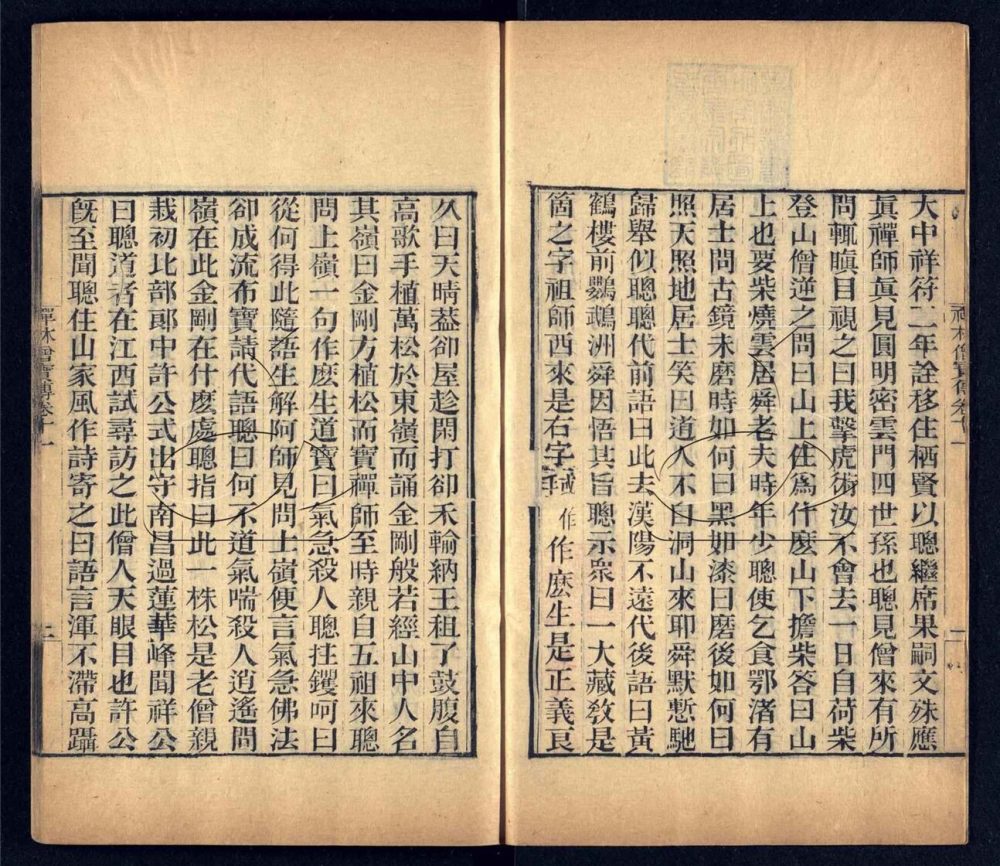 禪林僧寶傳卷十一
一
大中祥符二年詮移住栖賢以聰繼席果嗣文殊應
眞禪師眞見圓明密雲門四世孫也聰見僧來有所
問輒瞋目視之曰我擊虎術汝不會去一日自荷柴
登山僧逆之問曰山上住爲什麽山下擔柴答曰山
上也要柴燒雲居舜老夫時年少聰使乞食鄂渚有
居士問古鏡未磨時如何曰黑如漆曰磨後如何曰
照天照地居士笑曰道人不自洞山來耶舜默慙馳
歸舉似聰聰代前語曰此去漢陽不遠代後語曰黃
鶴樓前鸚鵡洲舜因悟其旨聰示衆曰一大藏敎是
箇之字祖師西來是右字或作作麽生是正義良
久曰天晴葢卻屋趁閑打卻禾輸納王租了鼓腹自
高歌手植萬松於東嶺而誦金剛般若經山中人名
其嶺曰金剛方植松而寶禪師至時親自五祖來聰
問上嶺一句作麽生道寶曰氣急殺人聰拄钁呵曰
從何得此隨語生解阿師見問上嶺便言氣急佛法
卻成流布寶請代語聰曰何不道氣喘殺人逍遙問
嶺在此金剛在什麽處聰指曰此一株松是老僧親
栽初比部郎中許公式出守南昌過蓮華峰聞祥公
曰聰道者在江西試尋訪之此僧人天眼目也許公
旣至聞聰住山家風作詩寄之曰語言渾不滯高躡
禪林僧寶傳卷十一
二